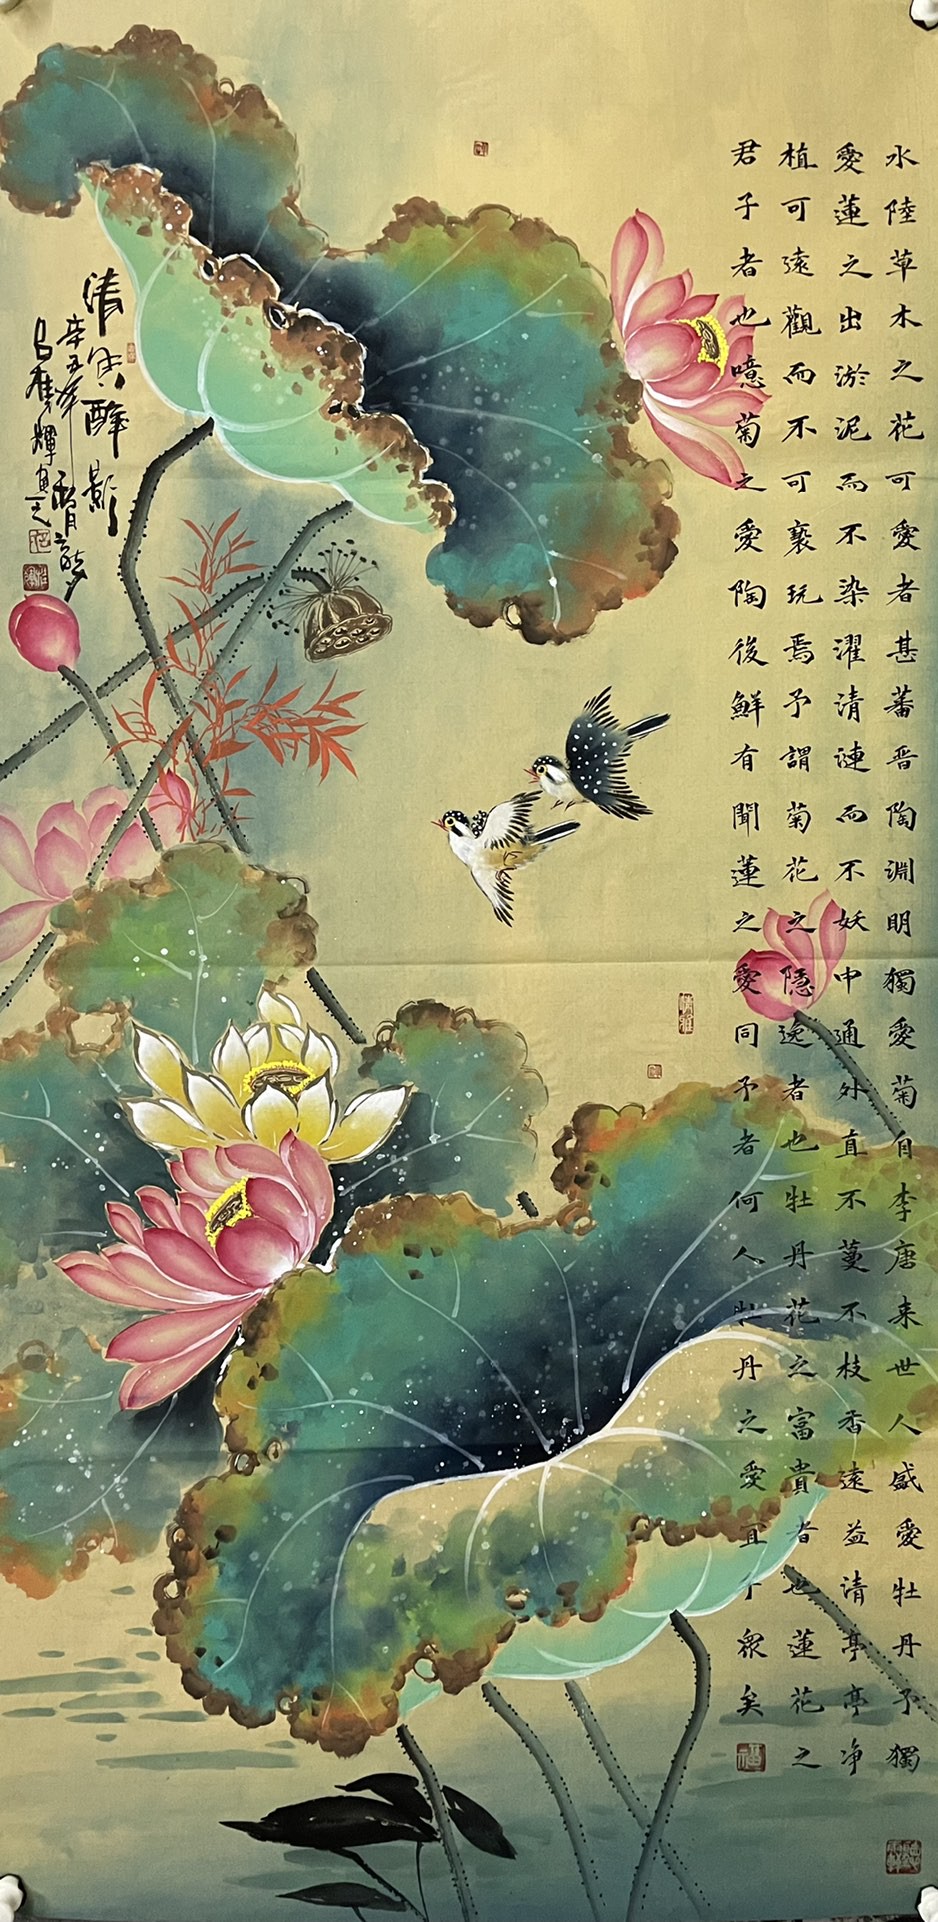 水陸草木之花可愛者甚蕃晋陶淵明獨愛菊自李唐来世人盛愛牡丹予獨
愛蓮之出淤泥而不染濯清漣而不妖中通外直不蔓不枝香遠益清亭亭净
植可遠觀而不可褻玩焉予謂菊花之隱逸者也牡丹花之富貴者也蓮花之
君子者也噫菊之愛陶後鮮有聞蓮之愛同予者何人牡丹之愛宜乎衆矣
清醉影
辛丑年
輝